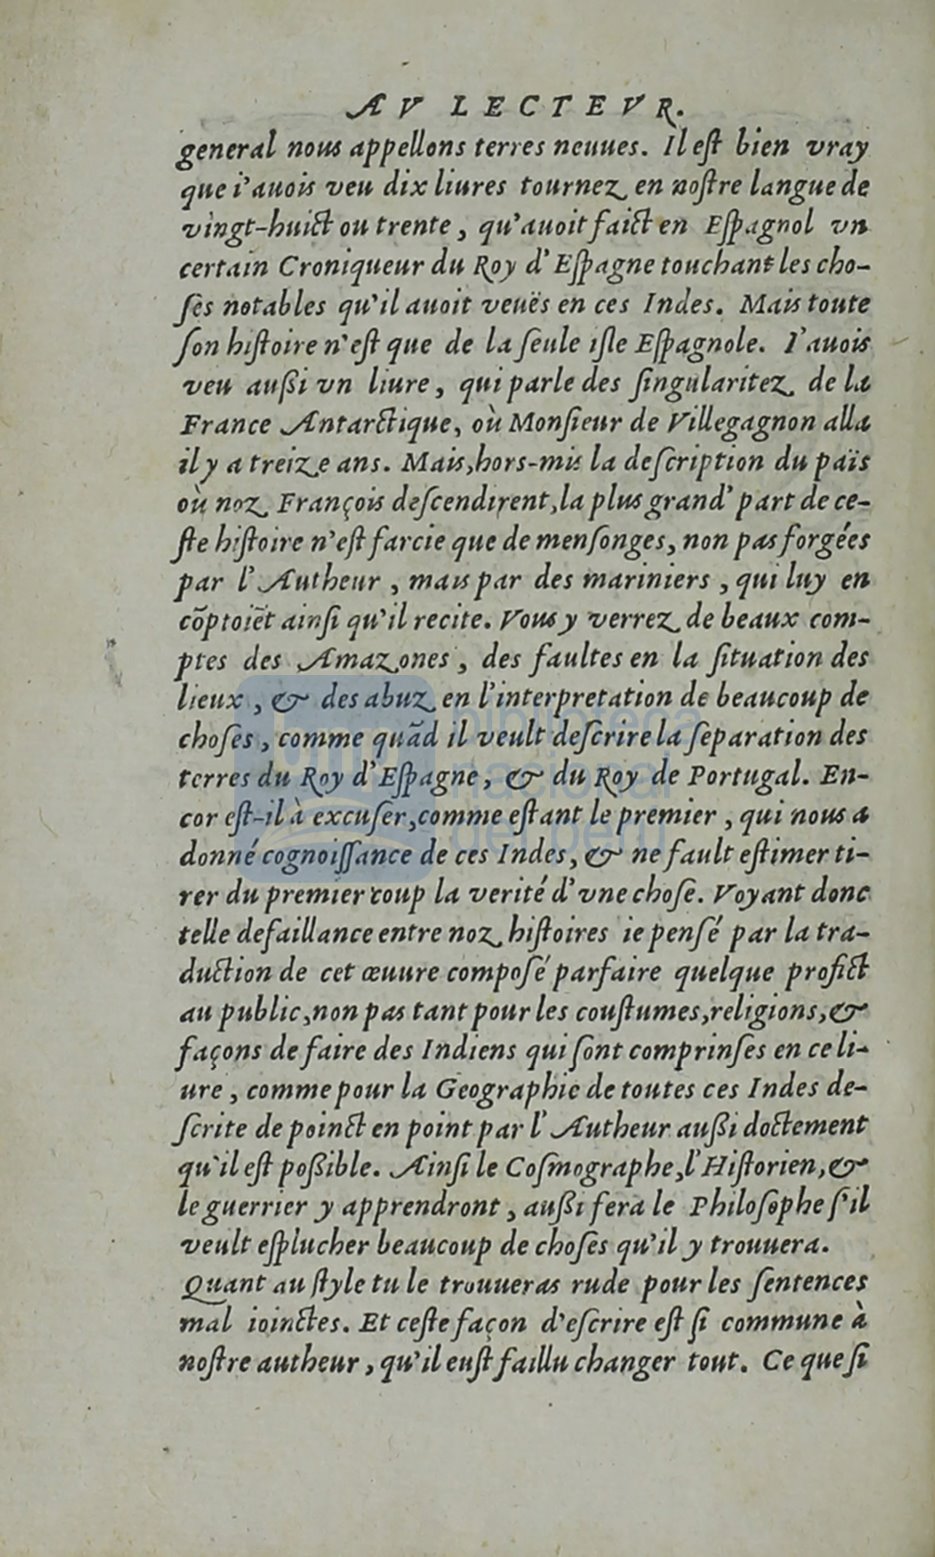 AV LECTEVR.
general nous appellons terres neuues. Il eſt bien vray
que i'auois veu dix liures tournez en noſtre langue de
vingt-huict ou trente, qu'auoit faict en Eſpagnol vn
certain Croniqueur du Roy d'Eſpagne touchant les cho-
ſes notables qu'il auoit veuës en ces Indes. Mais toute
ſon hiſtoire n'eſt que de la ſeule iſle Eſpagnole. I'auois
veu auſſi vn liure, qui parle des ſingularitez de la
France Antarctique, où Monſieur de Villegagnon alla
il y a treize ans. Mais, hors-mis la deſcription du païs
où noz François deſcendirent, la plus grand' part de ce-
ſte hiſtoire n'eſt farcie que de menſonges, non pas forgées
par l'Autheur, mais par des mariniers, qui luy en
cõptoiẽt ainſi qu'il recite. Vous y verrez de beaux com-
ptes des Amazones, des faultes en la ſituation des
lieux, & des abuz en l'interpretation de beaucoup de
choſes, comme quãd il veult deſcrire la ſeparation des
terres du Roy d'Eſpagne, & du Roy de Portugal. En-
cor eſt-il à excuſer, comme eſtant le premier, qui nous a
donné cognoiſſance de ces Indes, & ne fault eſtimer ti-
rer du premier coup la verité d'vne choſe. Voyant donc
telle defaillance entre noz hiſtoires ie penſé par la tra-
duction de cet œuure compoſé parfaire quelque profict
au public, non pas tant pour les couſtumes, religions, &
façons de faire des Indiens qui ſont comprinſes en ce li-
ure, comme pour la Geographie de toutes ces Indes de-
ſcrite de poinct en point par l'Autheur auſſi doctement
qu'il eſt poſſible. Ainſi le Coſmographe, l'Hiſtorien, &
le guerrier y apprendront, auſſi fera le Philoſophe ſ'il
veult eſplucher beaucoup de choſes qu'il y trouuera.
Quant au ſtyle tu le trouueras rude pour les ſentences
mal ioinctes. Et ceſte façon d'eſcrire eſt ſi commune à
noſtre autheur, qu'il euſt faillu changer tout. Ce que ſi
biblioteca
nacional